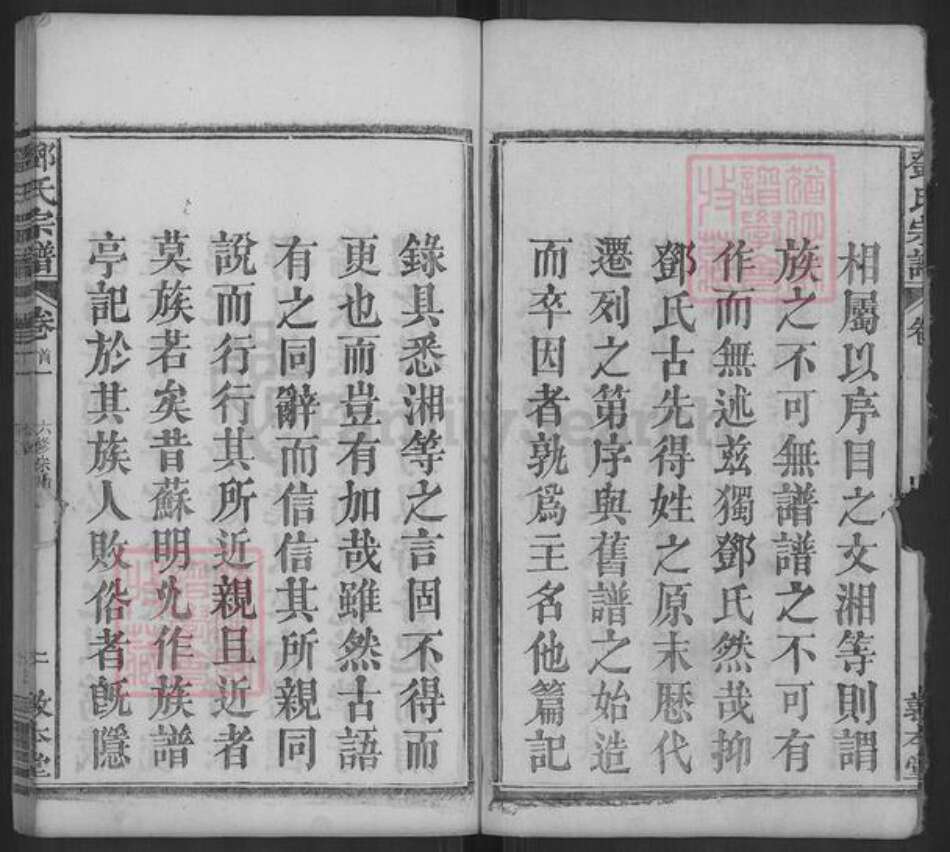 相屬以序目之文湘等則謂
族之不可無譜譜之不可有
作而無述茲獨鄧氏然哉抑
鄧氏古先得姓之原末歷代
遷列之第序與舊譜之始造
而卒因者孰爲主名他篇記
錄具悉湘等之言固不得而
更也而豈有加哉雖然古語
有之同辭而信信其所親同
說而行行其所近親且近者
莫族若矣昔蘇明允作族譜
亭記於其族人敗俗者旣隱
鄧氏宗譜
卷首
二
敦本堂